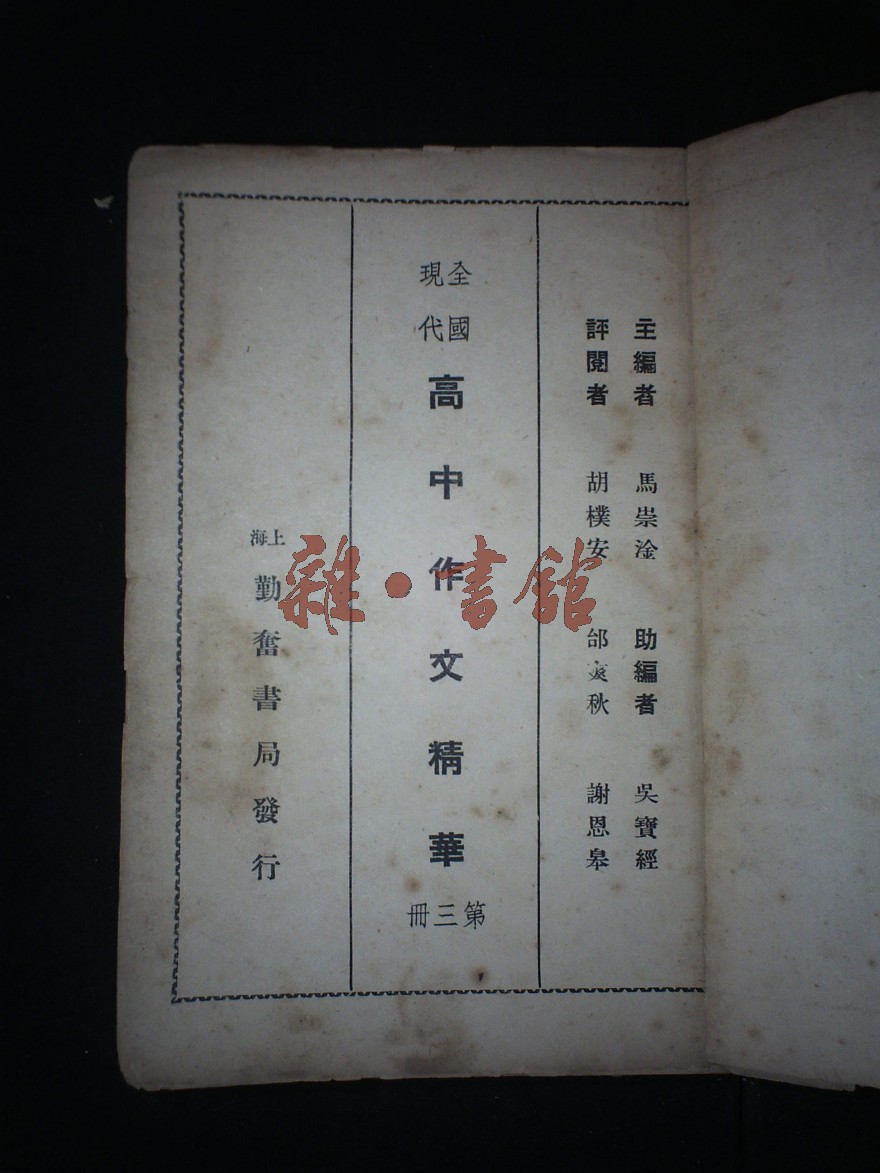 主編者 馬崇淦 助編者 吳寶經
評閱者 胡樸安 邰爽秋 謝恩皋
全國
現代
高中作文精華
第三冊
上海
勤奮書局發行
雜·書館